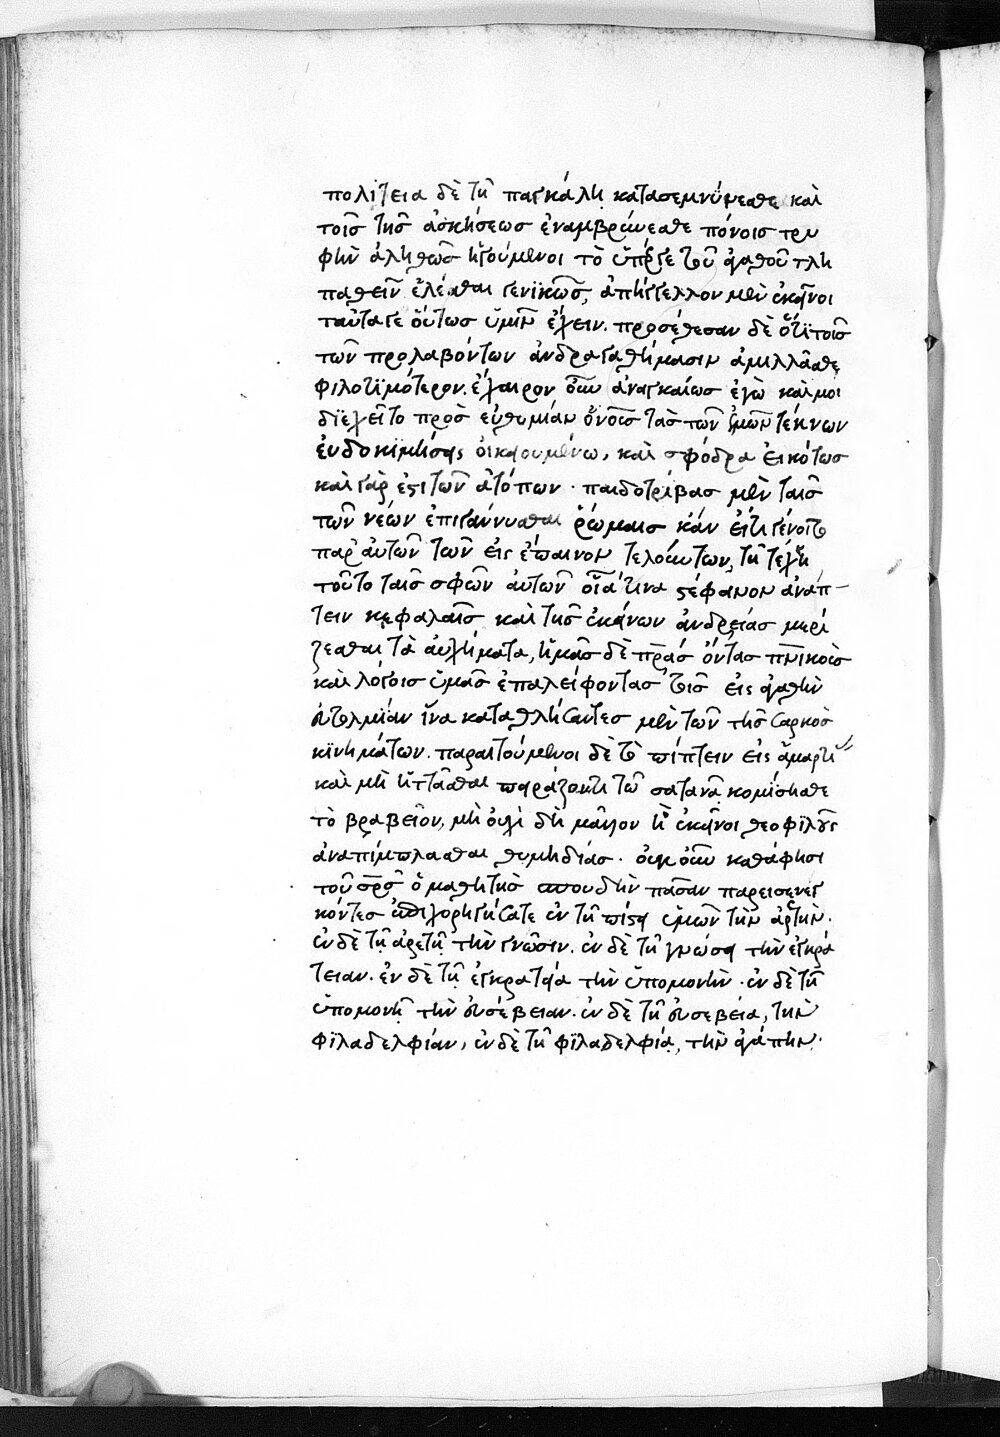 πολιτεια δὲ τῆ παγκάλη κατασεμνύνεσθε καὶ
τοῖσ τῆσ ἀσκήσεωσ ἐναμβρύνεσθε πόνοισ τρυ
φὴν ἀληθῶσ ἡγούμενοι τὸ ὑπέρ γε τοῦ ἀγαθοῦ τλη
παθεῖν ἑλέσθαι γενϊκῶσ, ἀπήγγελλον μὲν ἐκεῖνοι
ταῦτα γε οὕτωσ ὑμῖν ἔχειν. προσέθεσαν δὲ ὅτι τοῖσ
τῶν προλαβόντων ἀνδραγαθήμασιν ἁμιλλᾶσθε
φιλοτϊμότερον. ἔχαιρον οὖν ἀναγκαίωσ ἐγὼ καί μοι
διελεῖτο πρὸσ εὐθυμίαν ὁ νοῦσ τὰσ τῶν ἐμῶν τέκνων
εὐδοκϊμήσεις οἰκειουμένω, καὶ σφόδρα εἰκότωσ
καὶ γάρ ἐστι τῶν ἀτόπων. παιδοτρίβασ μὲν ταῖσ
τῶν νέων ἐπιγάννυσθαι ῥώμαισ κἂν εἴ τι γένοιτο
παρ αὐτῶν τῶν εἰς ἔπαινον τελούντων, τῆ τέχνη
τοῦτο ταῖσ σφῶν αὐτῶν οἷά τινα στέφανον ἀνάπ-
τειν κεφαλαῖσ καὶ τῆσ ἐκείνων ἀνδρείασ μερί
ζεσθαι τὰ αὐχήματα, ἡμᾶσ δὲ πρασ ὄντασ πνικοὺσ
καὶ λόγοισ ὑμᾶσ ἐπαλείφοντασ τοῖσ εἰς ἀγαθὴν
εὐτολμίαν ἵνα καταθλήσαντεσ μὲν τῶν τῆσ σαρκὸσ
κϊνημάτων. παραιτούμενοι δὲ τὸ πίπτειν εἰς ἁμαρτί
καὶ μὴ ἡττᾶσθαι πειράζοντι τῶ σατανᾶ κομίσησθε
τὸ βραβεῖον, μὴ οὐχὶ δὴ μᾶλλον ἢ ἐκεῖνοι θεοφϊλοῦς
ἀναπίμπλασθαι θυμηδίασ. οὐκοῦν καθά φησι
τοῦ σρσ ὁ μαθητὴσ σπουδὴν πᾶσαν παρεισενεγ
κόντεσ ἐπιχορηγήσατε ἐν τῆ πίστει ὑμῶν τὴν ἀρετὴν.
ἐν δὲ τῆ ἀρετῆ τὴν γνῶσιν. ἐν δὲ τῆ γνώσει τὴν ἐγκρά
τειαν. ἐν δὲ τῆ ἐγκρατεία τὴν ὑπομονὴν. ἐν δὲ τῆ
ὑπομονῆ τὴν εὐσέβειαν. ἐν δὲ τῆ εὐσεβεία, τὴν
φϊλαδελφίαν, ἐν δὲ τῆ φϊλαδελφία, τὴν ἀγάπην.